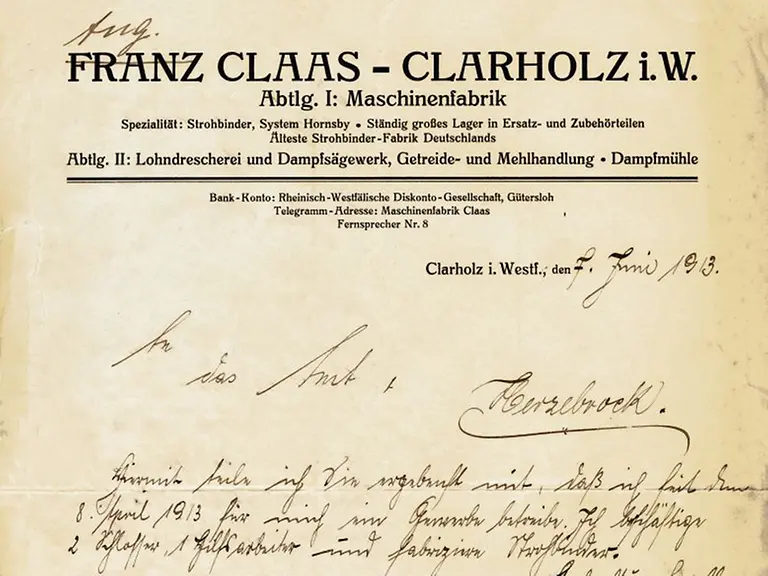 Aug.
FRANZ CLAAS – CLARHOLZ i.W.
Abtlg. I: Maschinenfabrik
Spezialität: Strohbinder, System Hornsby • Ständig großes Lager in Ersatz- und Zubehörteilen
Älteste Strohbinder-Fabrik Deutschlands
Abtlg. II: Lohndrescherei und Dampfsägewerk, Getreide- und Mehlhandlung • Dampfmühle
Bank-Konto: Rheinisch-Westfälische Diskonto-Gesellschaft, Gütersloh
Telegramm-Adresse: Maschinenfabrik Claas
Fernsprecher Nr. 8
Clarholz i. Westf., den 7. Juni 1913.
An
das Amt,
Herzebrock.
Hiermit teile ich Sie ergebenst mit, daß ich seit dem
8. April 1913 für mich ein Gewerbe betreibe. Ich beschäftige
2 Schlosser, 1 Hilfsarbeiter und fabriziere Strohbinder.